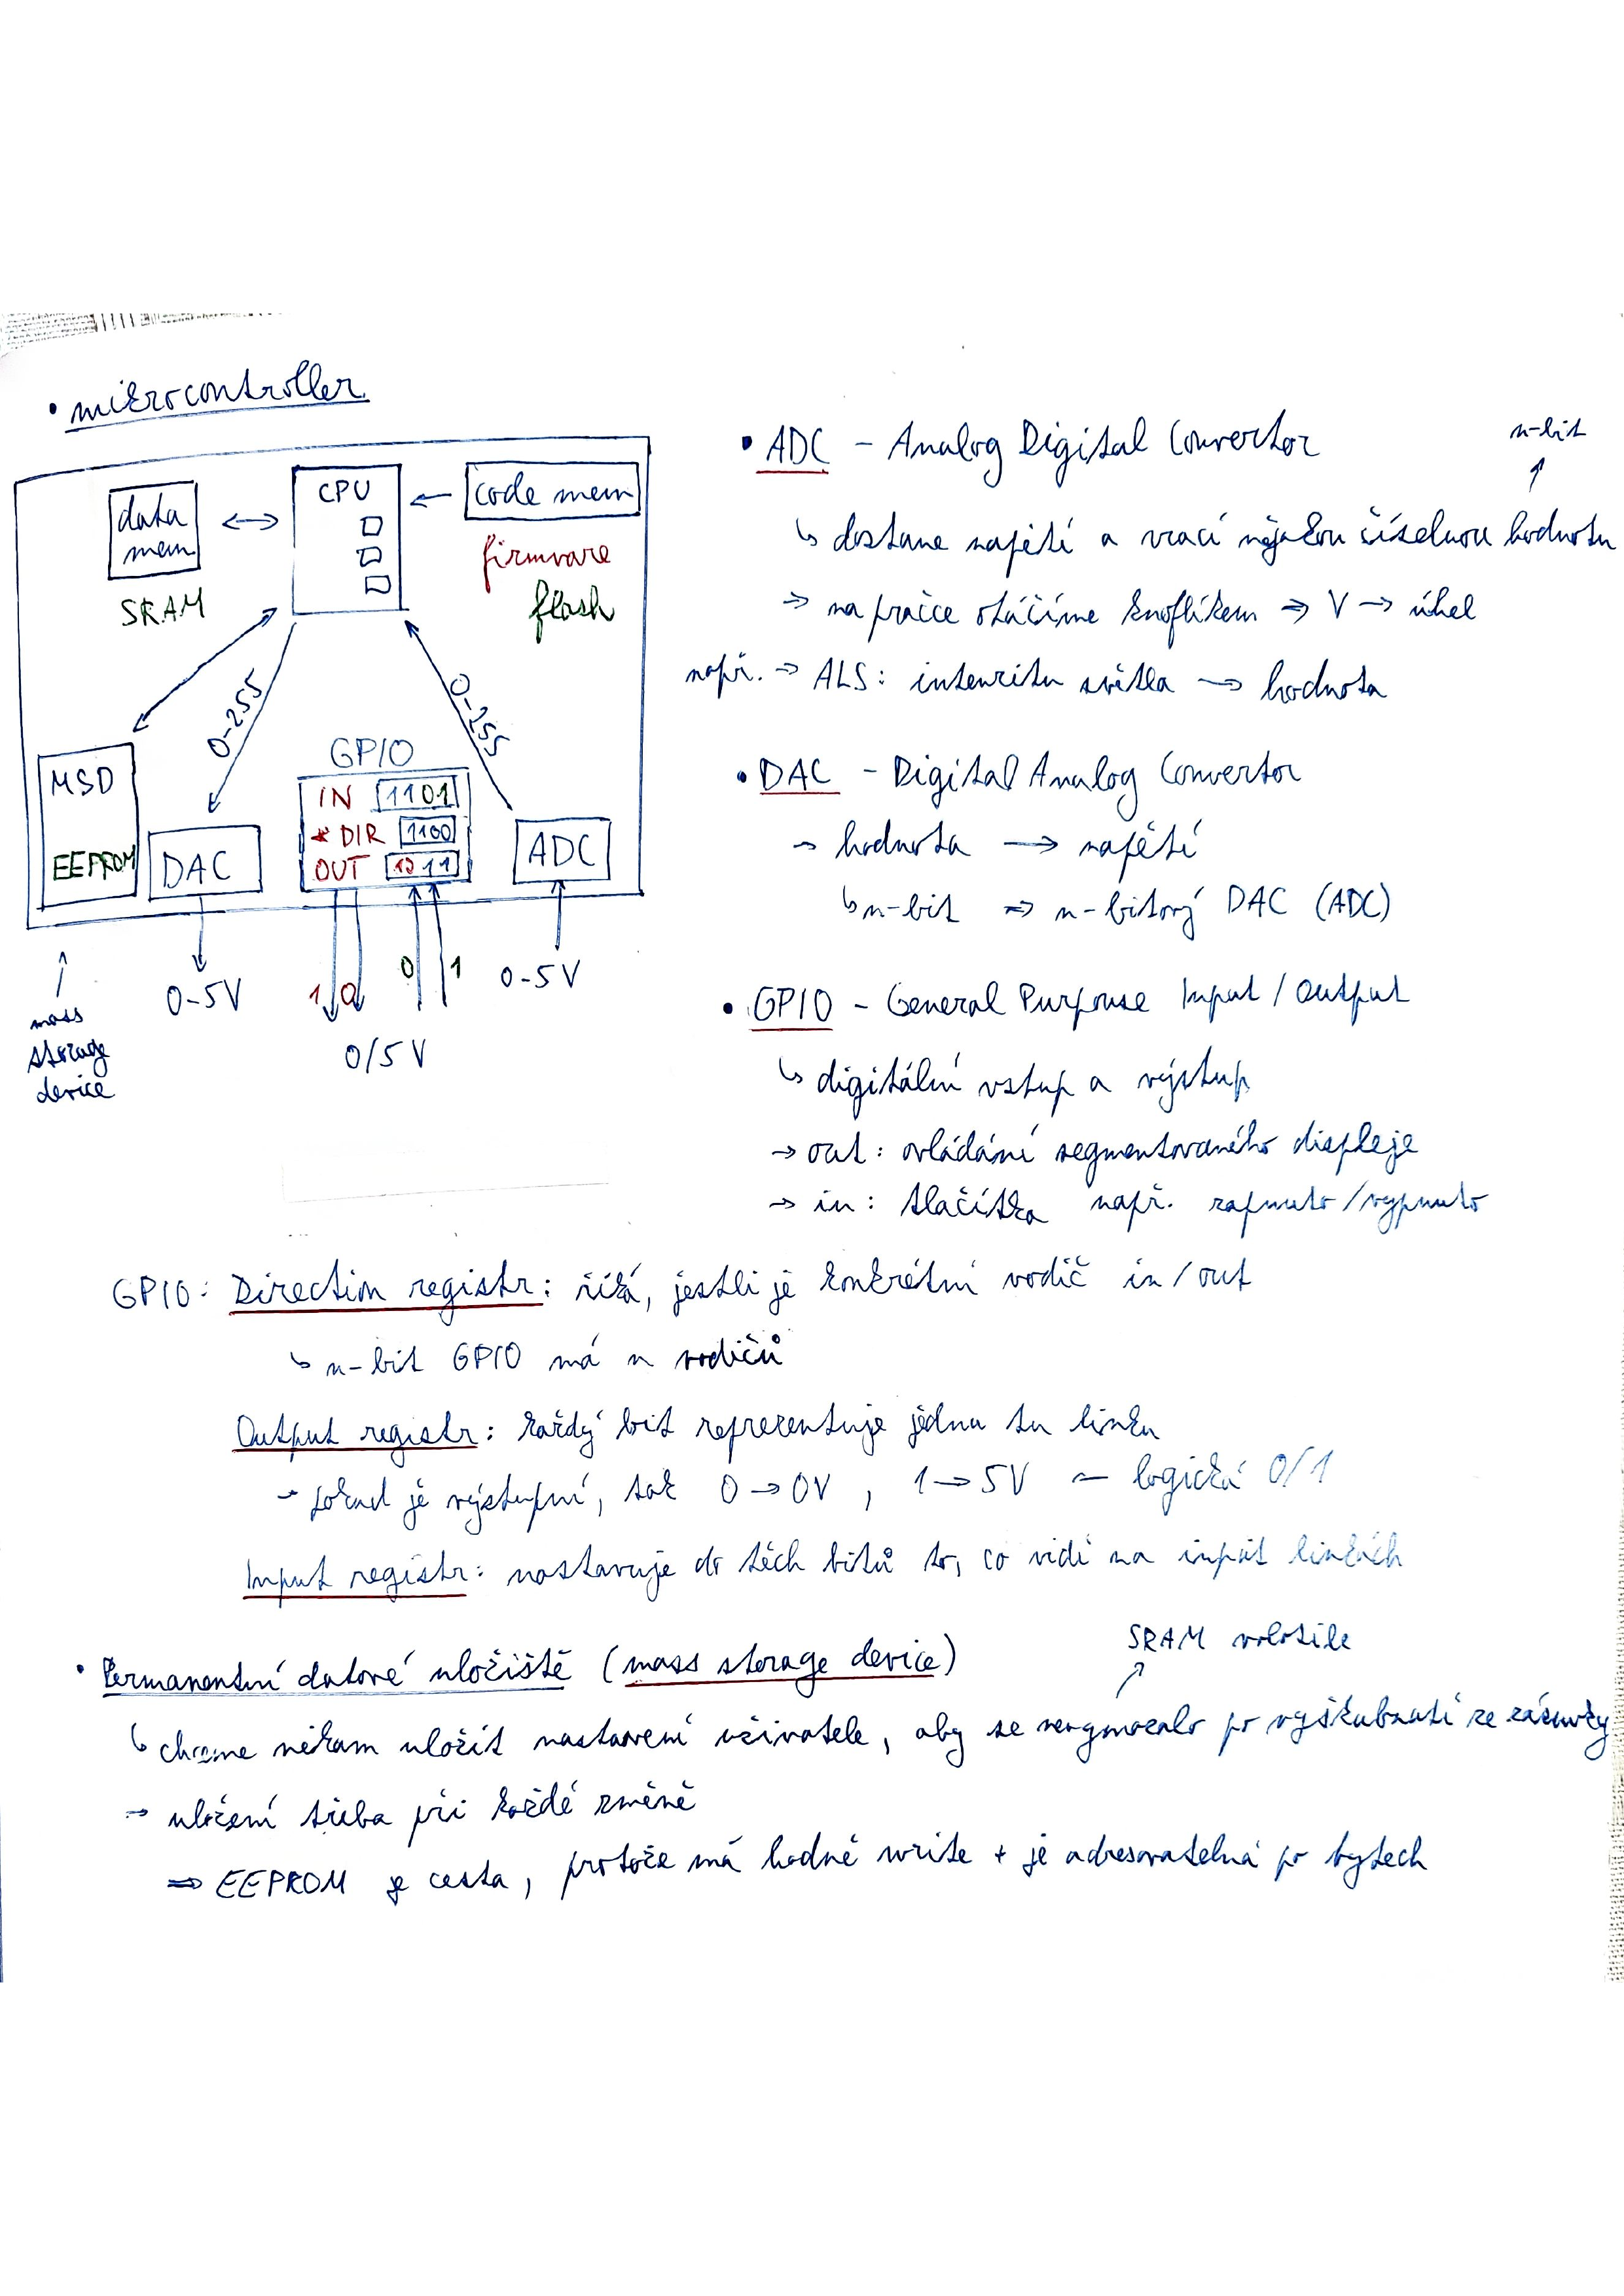 • mikrocontroller
data
mem
SRAM
CPU
code mem
firmware
flash
0-255
0-255
MSD
EEPROM
DAC
GPIO
IN 1101
* DIR 1100
OUT 1011
ADC
0-5V
1 0
0 1
0/5 V
0-5V
mass
storage
device
• ADC - Analog Digital Convertor
n-bit
↳ dostane napětí a vrací nějakou číselnou hodnotu
→ na pračce otáčíme knoflíkem ⇒ V → úhel
např. → ALS: intenzitu světla → hodnota
• DAC - Digital Analog Convertor
→ hodnota → napětí
↳ n-bit ⇒ n-bitový DAC (ADC)
• GPIO - General Purpouse Input / Output
↳ digitální vstup a výstup
→ out: ovládání segmentovaného displeje
→ in: tlačítka např. zapnuto/vypnuto
GPIO: Direction registr: říká, jestli je konkrétní vodič in/out
↳ n-bit GPIO má n vodičů
Output registr: každý bit reprezentuje jednu tu linku
→ pokud je výstupní, tak 0 → 0V, 1 → 5V ~ logická 0/1
Input registr: nastavuje do těch bitů to, co vidí na input linkách
• Permanentní datové uložiště (mass storage device)
SRAM volatile
↳ chceme někam uložit nastavení uživatele, aby se nevymazalo po vyškubnutí ze zásuvky
→ uložení třeba při každé změně
⇒ EEPROM je cesta, protože má hodně write + je adresovatelná po bytech